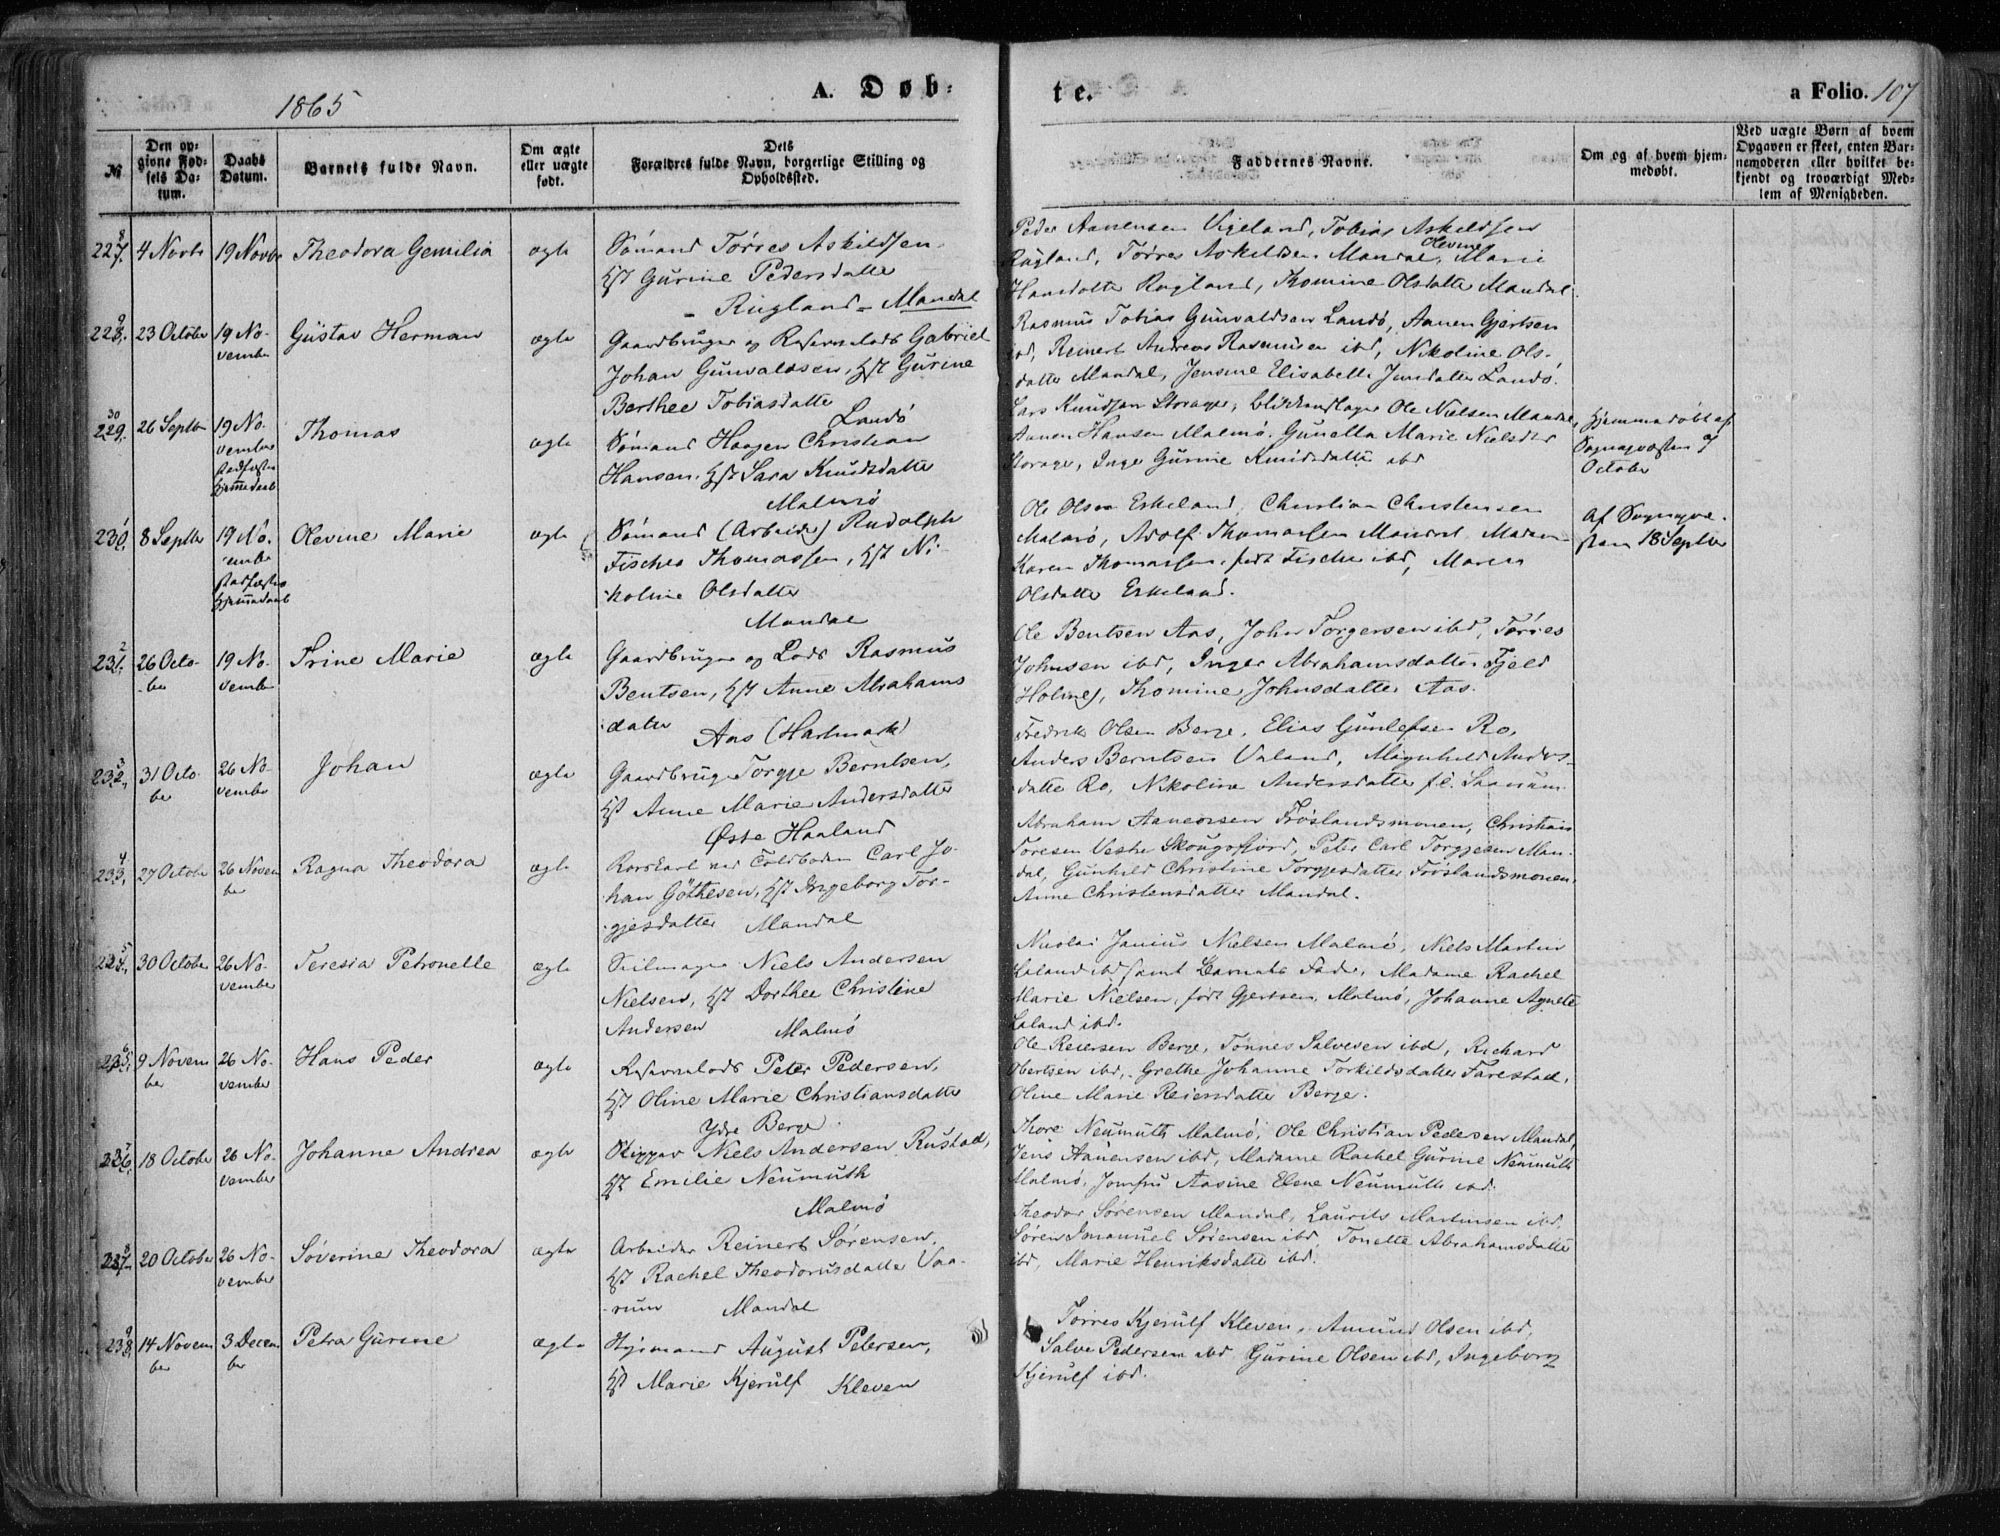 1865
A. Døb-
te.
a Folio. 107
№
Den op-
givne Fød-
sels Da-
tum.
Daabs
Datum.
Barnets fulde Navn.
Om ægte
eller uægte
født.
Dets
Forældres fulde Navn, borgerlige Stilling og
Opholdssted.
Faddernes Navne.
Om og af hvem hjem-
medøbt.
Ved uægte Børn af hvem
Opgaven er skeet, enten Bar-
nemoderen eller hvilket be-
kjendt og troværdigt Med-
lem af Menigheden.
8
227.
4 Novb
19 Novb
Theodora Gemilia
ægte
Sømand Tørres Askildsen
Hst Gurine Pedersdatte
- Rugland - Mandal
Peder Aanensen Vigeland, Tobias Askeldsen
Rugland, Tørres Askeldsen Mandal, Olevine Marie
Hansdatte Rugland, Thomine Olsdatte Mandal.
9
228.
23 Octobe
19 No-
vembe
Gustav Herman
ægte
Gaardbruger og Reservelods Gabriel
Johan Gunvaldsen, Hst Gurine
Berthee Tobiasdatte
Landø
Rasmus Tobias Gunvaldsen Landø, Aanen Gjertsen
ibd, Reinert Andreas Rasmusen ibd, Nikoline Ols-
datte Mandal, Jensine Elisabeth Jensdatte Landø.
30
229.
26 Septbr
19 No-
vembe
stadfæstn
hjemmedaab
Thomas
ægte
Sømand Haagen Christian
Hansen, Hst Sara Knudsdatte
Malmø
Lars Knudsen Storager, Ole Nielsen Mandal,
Aanen Hansen Malmø, Gunella Marie Nielsdtr
Storage, Inge Gurine Knudsdatte ibd
Hjemmedøbt af
Sognepræsten 7
Octobe
1
230.
8 Septbr
19 No-
vembe
stadfæstn
hjemmedaab
Olevine Marie
ægte
Sømand (Arbeide) Rudolph
Fisches Thomassen, Hst Ni-
koline Olsdatte
Mandal
Ole Olsen Eskeland, Christian Christensen
Malmø, Adolf Thomassen Mandal, Madam
Karen Thomassen, født Fische ibd, Maren
Olsdatte Eskeland.
Af Sognepræ-
sten 18 Septbr
2
231.
26 Octo-
ber
19 No-
vembe
Trine Marie
ægte
Gaardbruger og Lods Rasmus
Bentsen, Hst Anne Abrahams
datte
Aas (Hartmark)
Ole Bentsen Aas, John Torgersen ibd, Tørres
Johnsen ibd, Inger Abrahamsdatte Fjeld
Holme), Thomine Johnsdatte Aas.
3
232.
31 Octo-
ber
26 No-
vembe
Johan
ægte
Gaardbruge Torgje Berntsen,
Hst Anne Marie Andersdatte
Øste Haaland
Fredrik Olsen Berge, Elias Gunlefsen Ro,
Anders Berntsen Valand, Magnhild Anders-
datte Ro, Nikoline Andersdatte
4
233.
27 Octobe
26 Novem
ber
Ragna Theodora
ægte
Rorskarl ved Toldboden Carl Jo-
han Gøthesen, Hst Ingeborg Tor-
gjesdatter Mandal
Abraham Aanensen Frøslandsmonen, Christian
Toresen Vestre Skougsfjord, Peter Carl Torgjesen Man-
dal, Gunhild Christine Torgjesdatter Frøslandsmonen,
Anne Christensdatter Mandal.
5
234.
30 Octobe
26 No-
vembe
Teresia Petronelle
ægte
Seilmager Niels Andersen
Nielsen, Hst Dorthee Christine
Andersen Malmø
Nicolai Janius Nielsen Malmø, Niels Martin
Laland ibd samt Barnets Fader, Madame Rachel
Marie Nielsen, født Gjertsen Malmø, Johanne Agnete
Laland ibd.
6
235.
9 Novem
ber
26 No-
vembe
Hans Peder
ægte
Reservelods Peter Pedersen,
Hst Oline Marie Christiansdatte
Ydre Berge
Ole Reiersen Berge, Tønnes Salvesen ibd, Richard
Obertsen ibd, Grethe Johanne Torkildsdatte Farestad,
Oline Marie Reiersdatte Berge.
7
236.
18 Octobe
26 No-
vember
Johanne Andrea
ægte
Skipper Niels Andersen Rustad,
Hst Emilie Neumuth
Malmø
Thore Neumuth Malmø, Ole Christian Pedersen Mandal,
Jens Aanensen ibd, Madame Rachel Gurine Neumuth
Malmø, Jomfru Aasine Elene Neumuth ibd.
8
237.
20 Octobe
26 No-
vembe
Søverine Theodora
ægte
Arbeider Reinert Sørensen,
Hst Rachel Theodorusdatte Vaa-
rum Mandal
Theodor Sørensen Mandal, Laurits Martinsen ibd,
Søren Imanuel Sørensen ibd, Tonette Abrahamsdatte
ibd, Marie Henriksdatte ibd.
9
238.
14 Novem
ber
3 Decem
ber
Petra Gurine
ægte
August Petersen,
Hst Marie Kjerulf Kleven
Tørres Kjerulf Kleven, Amund Olsen ibd,
Salve Pedersen ibd Gurine Olsen ibd, Ingeborg
Kjerulf ibd.